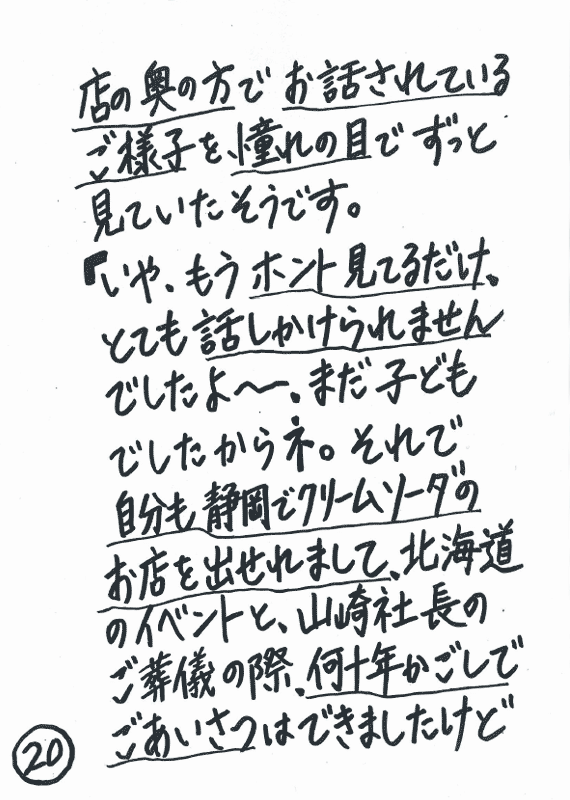 店の奥の方でお話されている
ご様子を、憧れの目でずっと
見ていたそうです。
「いや、もうホント見てるだけ、
とても話しかけられません
でしたよ〜、まだ子ども
でしたからネ。それで
自分も静岡でクリームソーダの
お店を出せれまして、北海道
のイベントと、山崎社長の
ご葬儀の際、何十年かごしで
ごあいさつはできましたけど
20